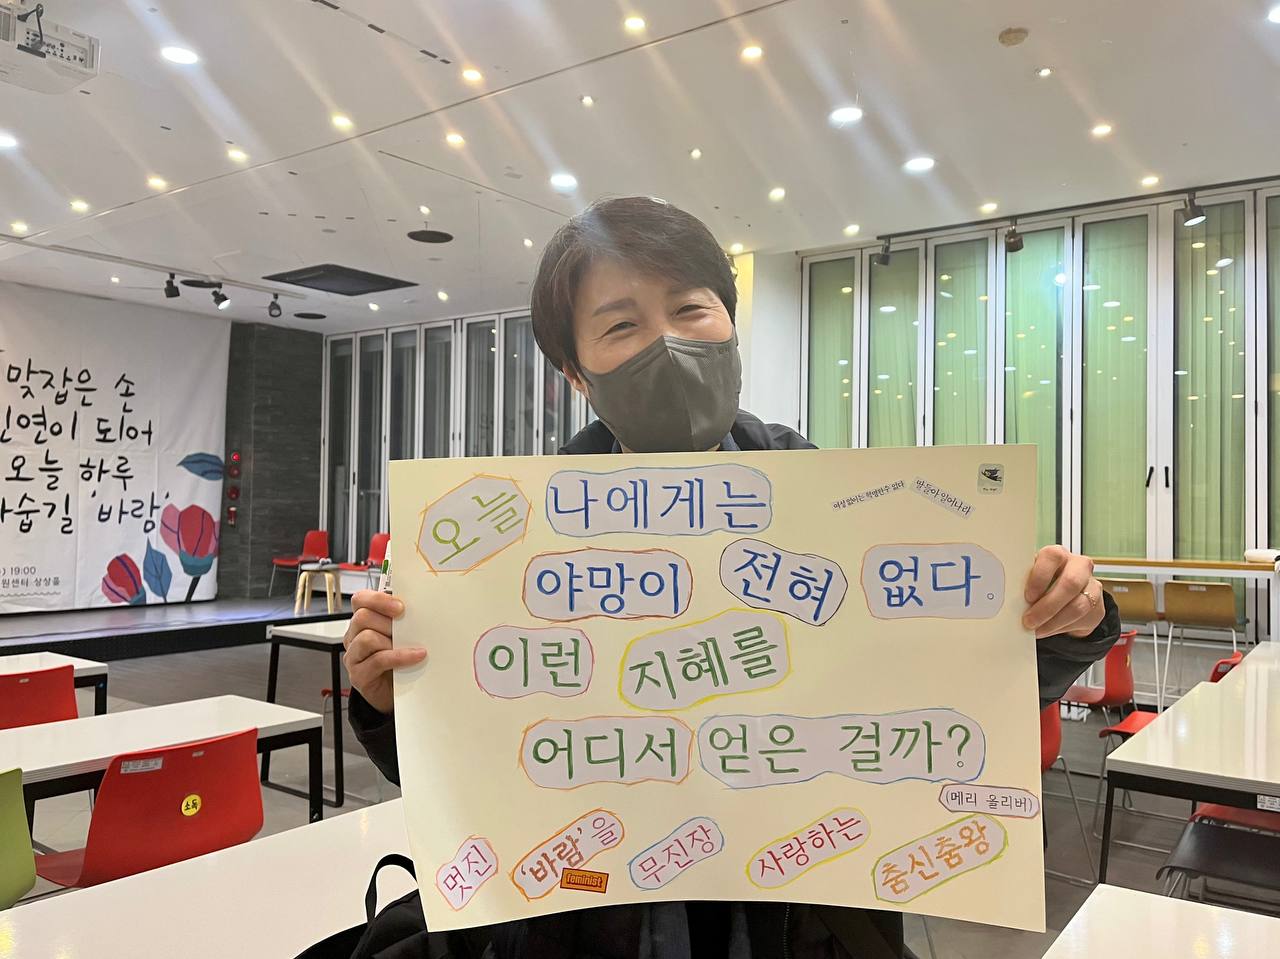 맞잡은 손
인연이 되어
오늘 하루
아숩길 '바람'
19:00
상상홀
오늘 나에게는
야망이 전혀 없다.
이런 지혜를
어디서 얻은 걸까?
(메리 올리버)
멋진 '바람'을 무진장 사랑하는 춤신춤왕
feminist
딸들아 일어나라
소독